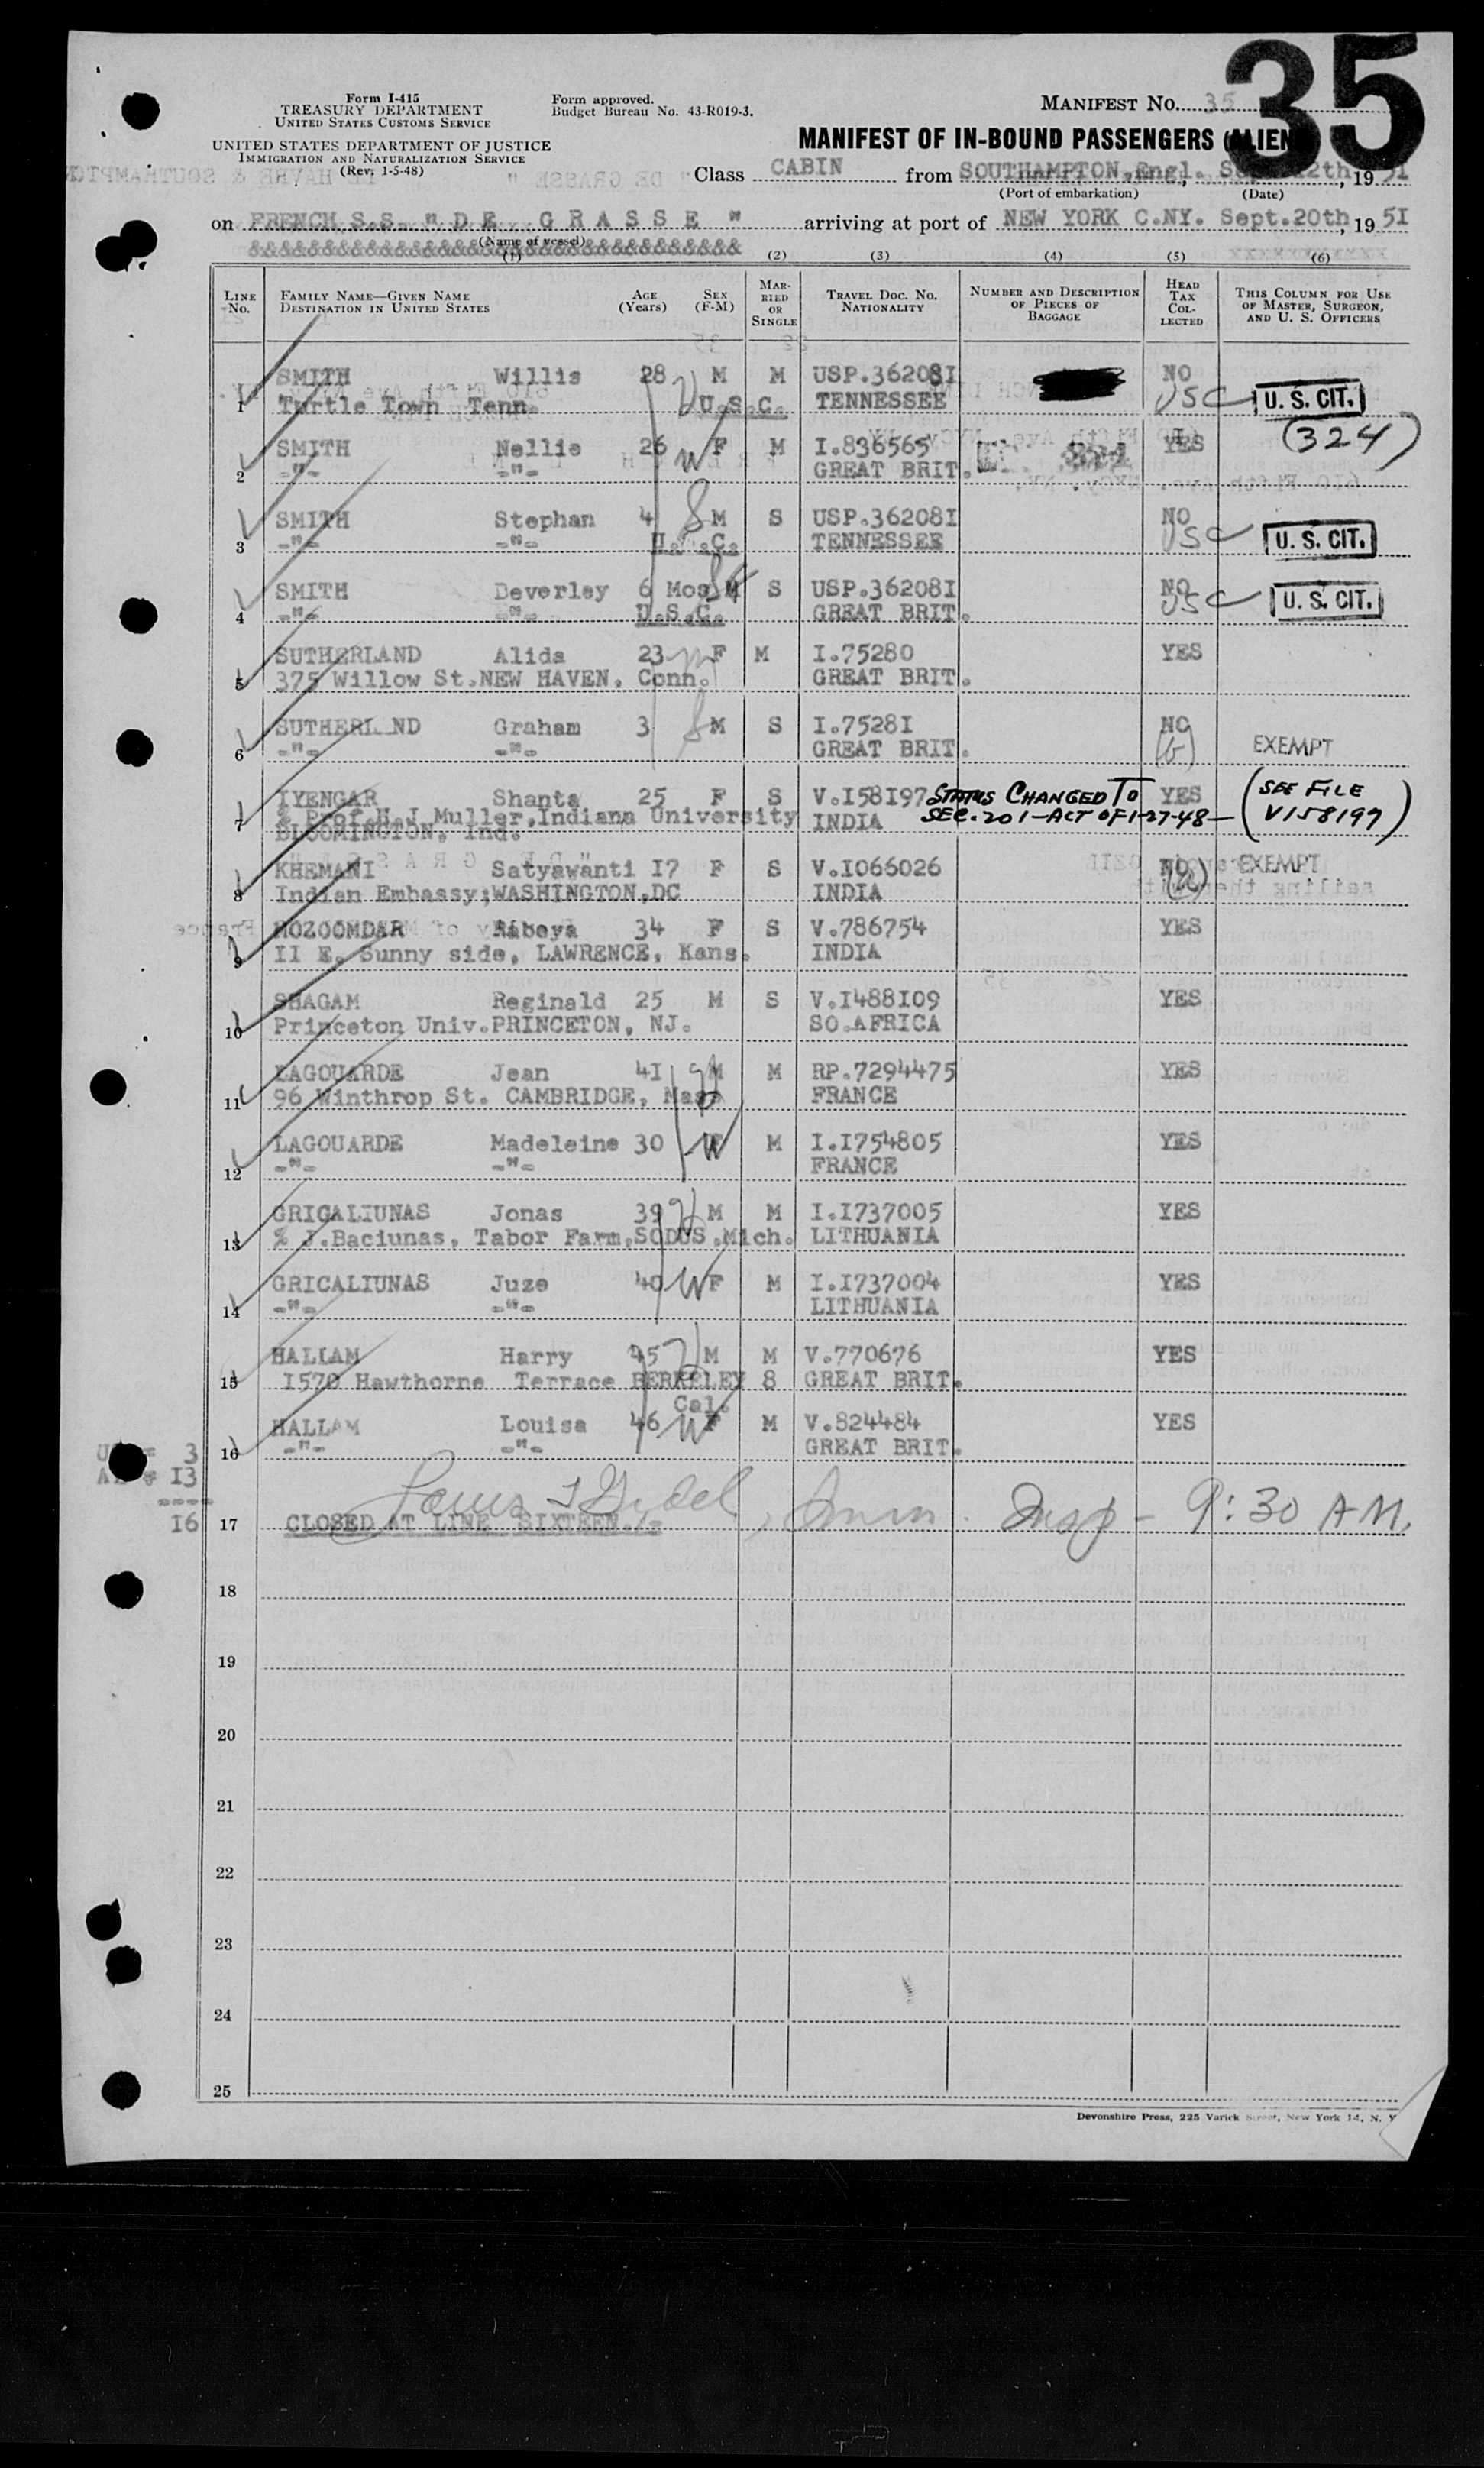 35
Form I-415
TREASURY DEPARTMENT
UNITED STATES CUSTOMS SERVICE
UNITED STATES DEPARTMENT OF JUSTICE
IMMIGRATION AND NATURALIZATION SERVICE
(Rev. 1-5-48)
Form approved.
Budget Bureau No. 43-R019-3.
MANIFEST NO. 35
MANIFEST OF IN-BOUND PASSENGERS (ALIEN
Class CABIN from SOUTHAMPTON, Engl. 12th, 19 51
(Port of embarkation) (Date)
on FRENCH S.S. " D E G R A S S E " arriving at port of NEW YORK C.NY. Sept.20th, 19 5I
(Name of vessel)
(1) (2) (3) (4) (5) (6)
LINE No. FAMILY NAME—GIVEN NAME DESTINATION IN UNITED STATES AGE (Years) SEX (F-M) MARRIED OR SINGLE TRAVEL DOC. NO. NATIONALITY NUMBER AND DESCRIPTION OF PIECES OF BAGGAGE HEAD TAX COLLECTED THIS COLUMN FOR USE OF MASTER, SURGEON, AND U. S. OFFICERS
SMITH Willis 28 M M USP.36208I NO
1 Turtle Town Tenn. U.S.C. TENNESSEE USC U. S. CIT.
SMITH Nellie 26 W F M I.836565 YES (324)
2 -"- -"- GREAT BRIT.
SMITH Stephan 4 S M S USP.36208I NO
3 -"- -"- U. .C. TENNESSEE USC U. S. CIT.
SMITH Deverley 6 Mos M S USP.36208I NO
4 -"- -"- U.S.C. GREAT BRIT. USC U. S. CIT.
SUTHERLAND Alida 23 F M I.75280 YES
5 375 Willow St.NEW HAVEN, Conn. GREAT BRIT.
SUTHERL ND Graham 3 S M S I.7528I NO
6 -"- -"- GREAT BRIT. EXEMPT
IYENGAR Shanta 25 F S V.I58I97 STATUS CHANGED TO YES (SEE FILE
7 % Prof.H.J.Muller,Indiana University INDIA SEC. 201-ACT OF 1-27-48- V158197)
BLOOMINGTON, Ind.
KHEMANI Satyawanti I7 F S V.I066026 NO EXEMPT
8 Indian Embassy;WASHINGTON,DC INDIA
MOZOOMDAR Rabeya 34 F S V.786754 YES
9 II E. Sunny side, LAWRENCE, Kans. INDIA
SHAGAM Reginald 25 M S V.I488I09 YES
10 Princeton Univ.PRINCETON, NJ. SO.AFRICA
LAGOUARDE Jean 4I M M RP.7294475 YES
11 96 Winthrop St. CAMBRIDGE, Mass FRANCE
LAGOUARDE Madeleine 30 W F M I.I754805 YES
12 -"- -"- FRANCE
GRICALIUNAS Jonas 39 M M I.I737005 YES
13 % J.Baciunas, Tabor Farm,SODUS,Mich. LITHUANIA
GRICALIUNAS Juze 40 W F M I.I737004 YES
14 -"- -"- LITHUANIA
HALLAM Harry 45 M M V.770676 YES
15 I570 Hawthorne Terrace BERKELEY 8 GREAT BRIT.
Cal.
HALLAM Louisa 46 W F M V.824484 YES
16 -"- -"- GREAT BRIT.
3
I3
----
I6
Louis , Imm. Insp - 9:30 AM.
17 CLOSED AT LINE SIXTEEN./-
18
19
20
21
22
23
24
25
Devonshire Press, 225 Varick Street, New York 14, N. Y